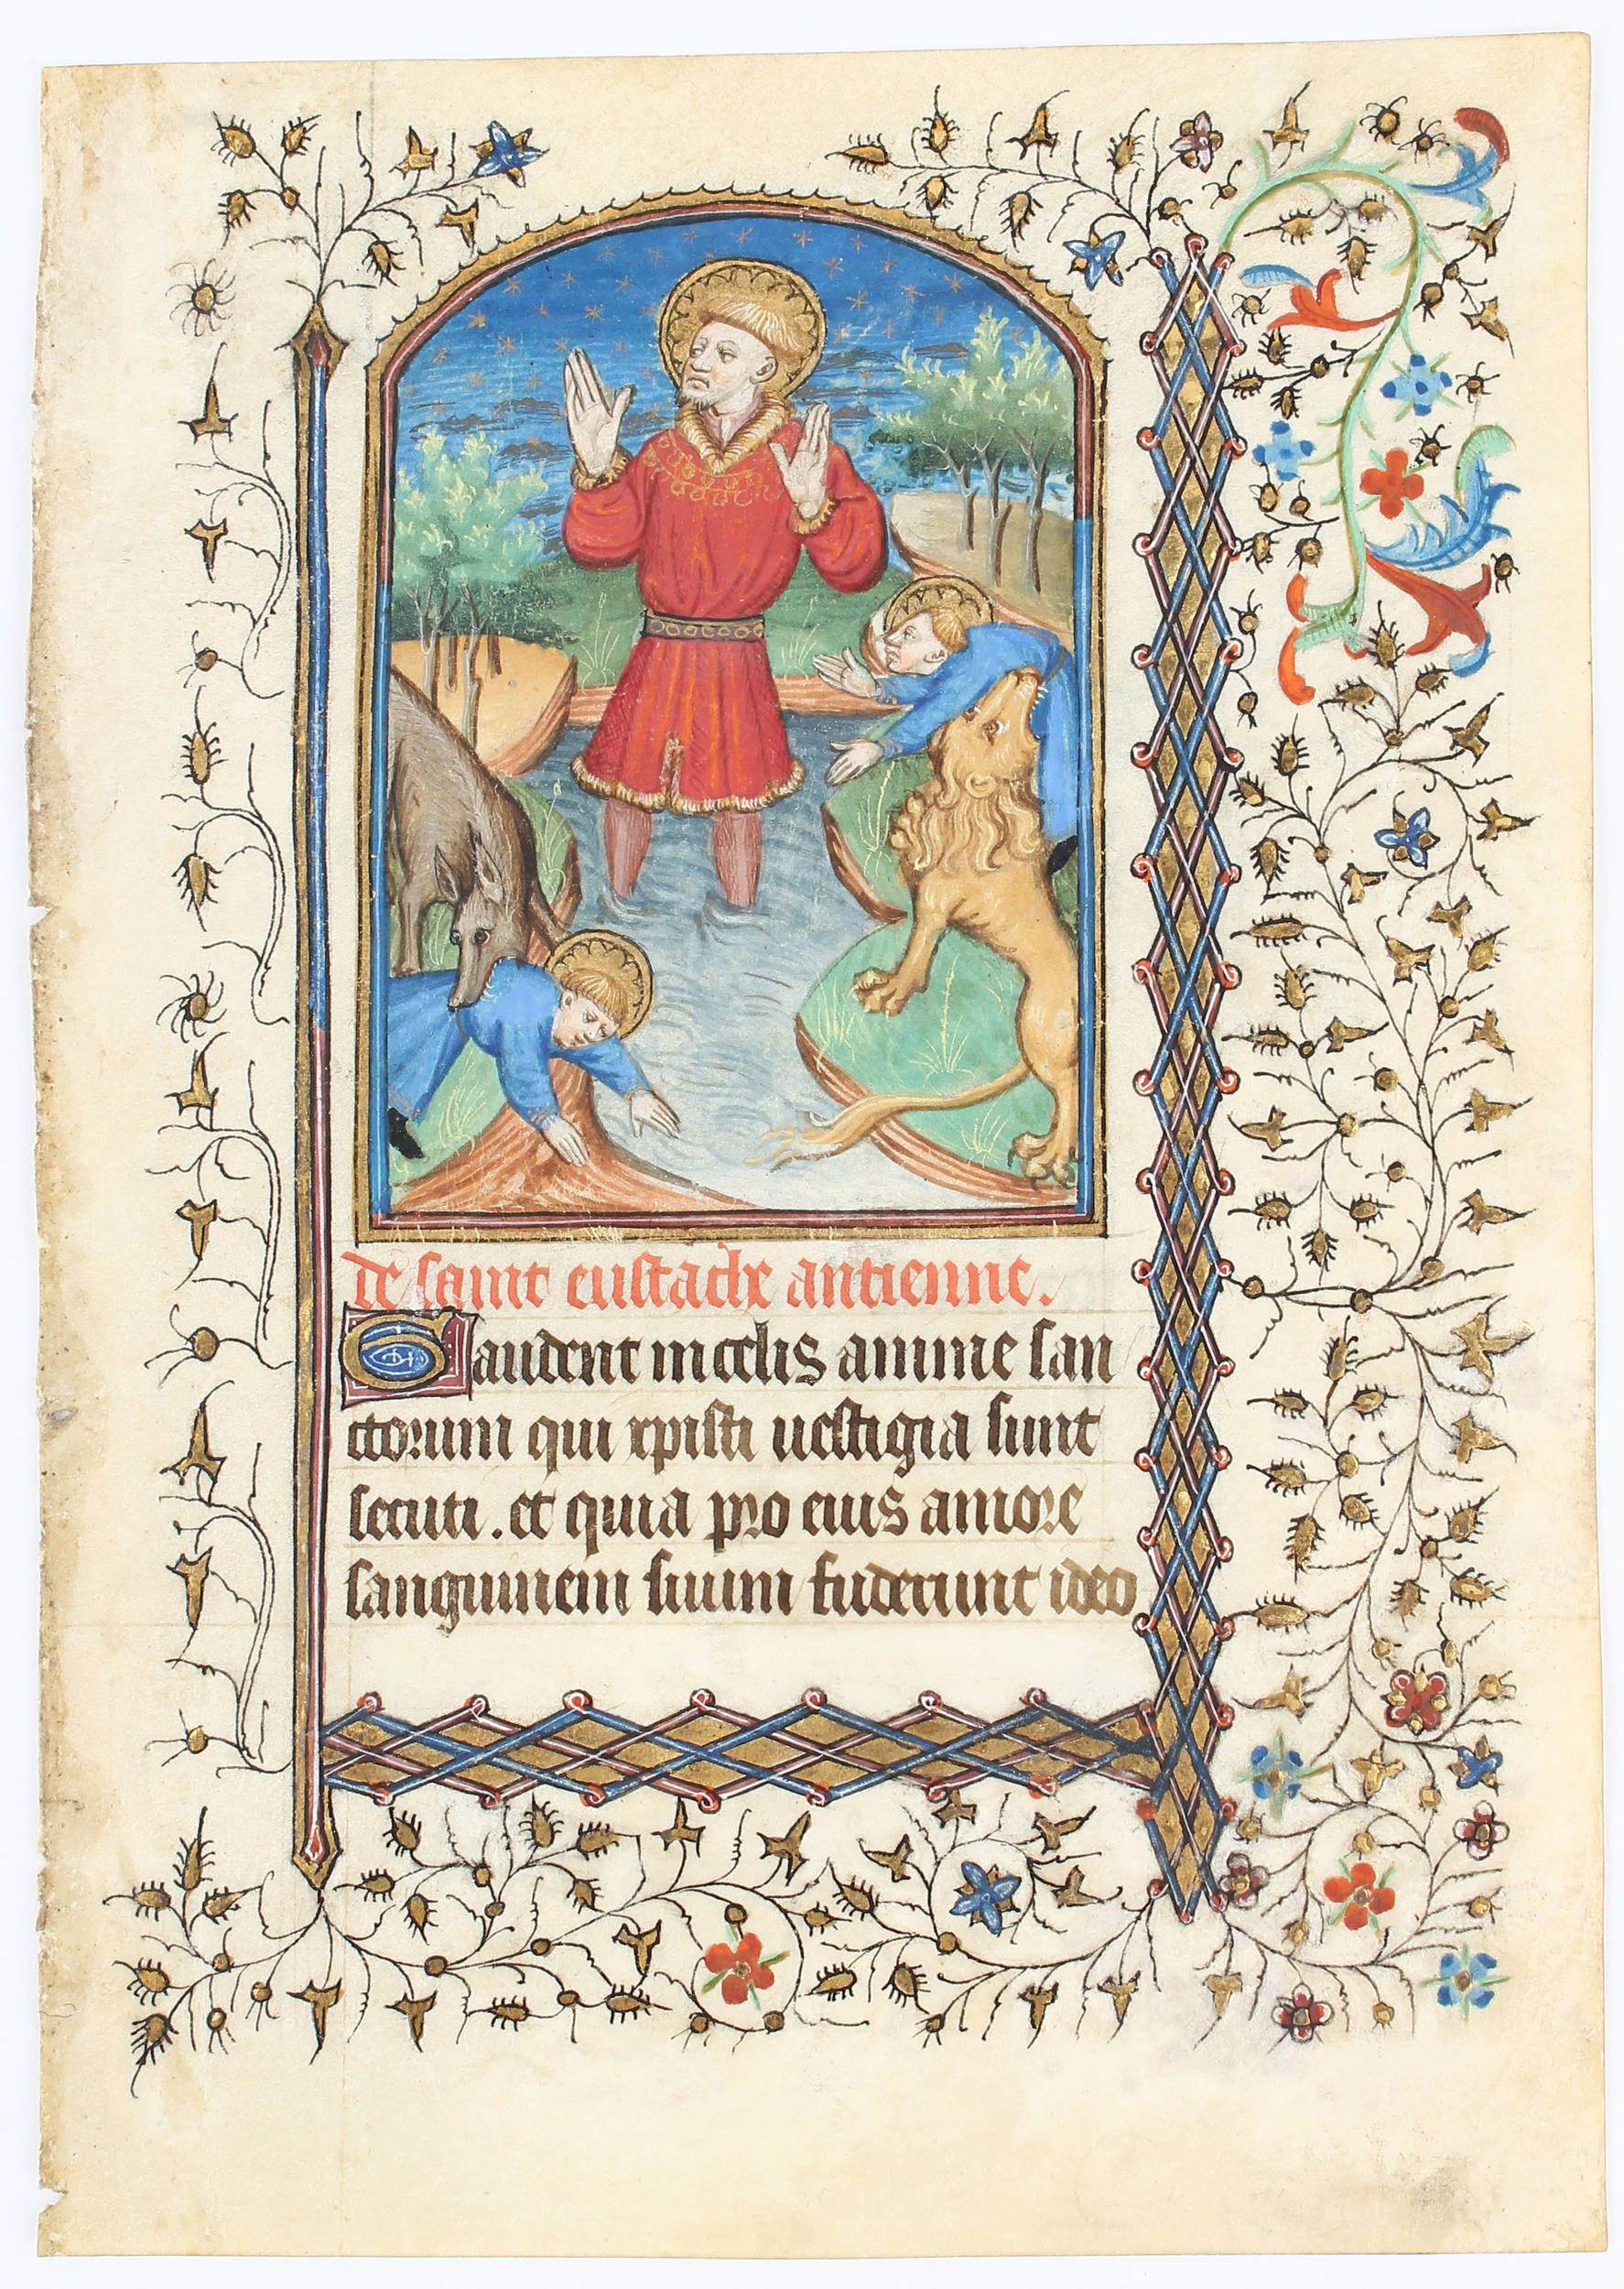 de saint eustache antienne.
Gaudent in celis anime san
ctorum qui xpisti uestigia sunt
secuti. et quia pro eius amore
sanguinem suum fuderunt ideo